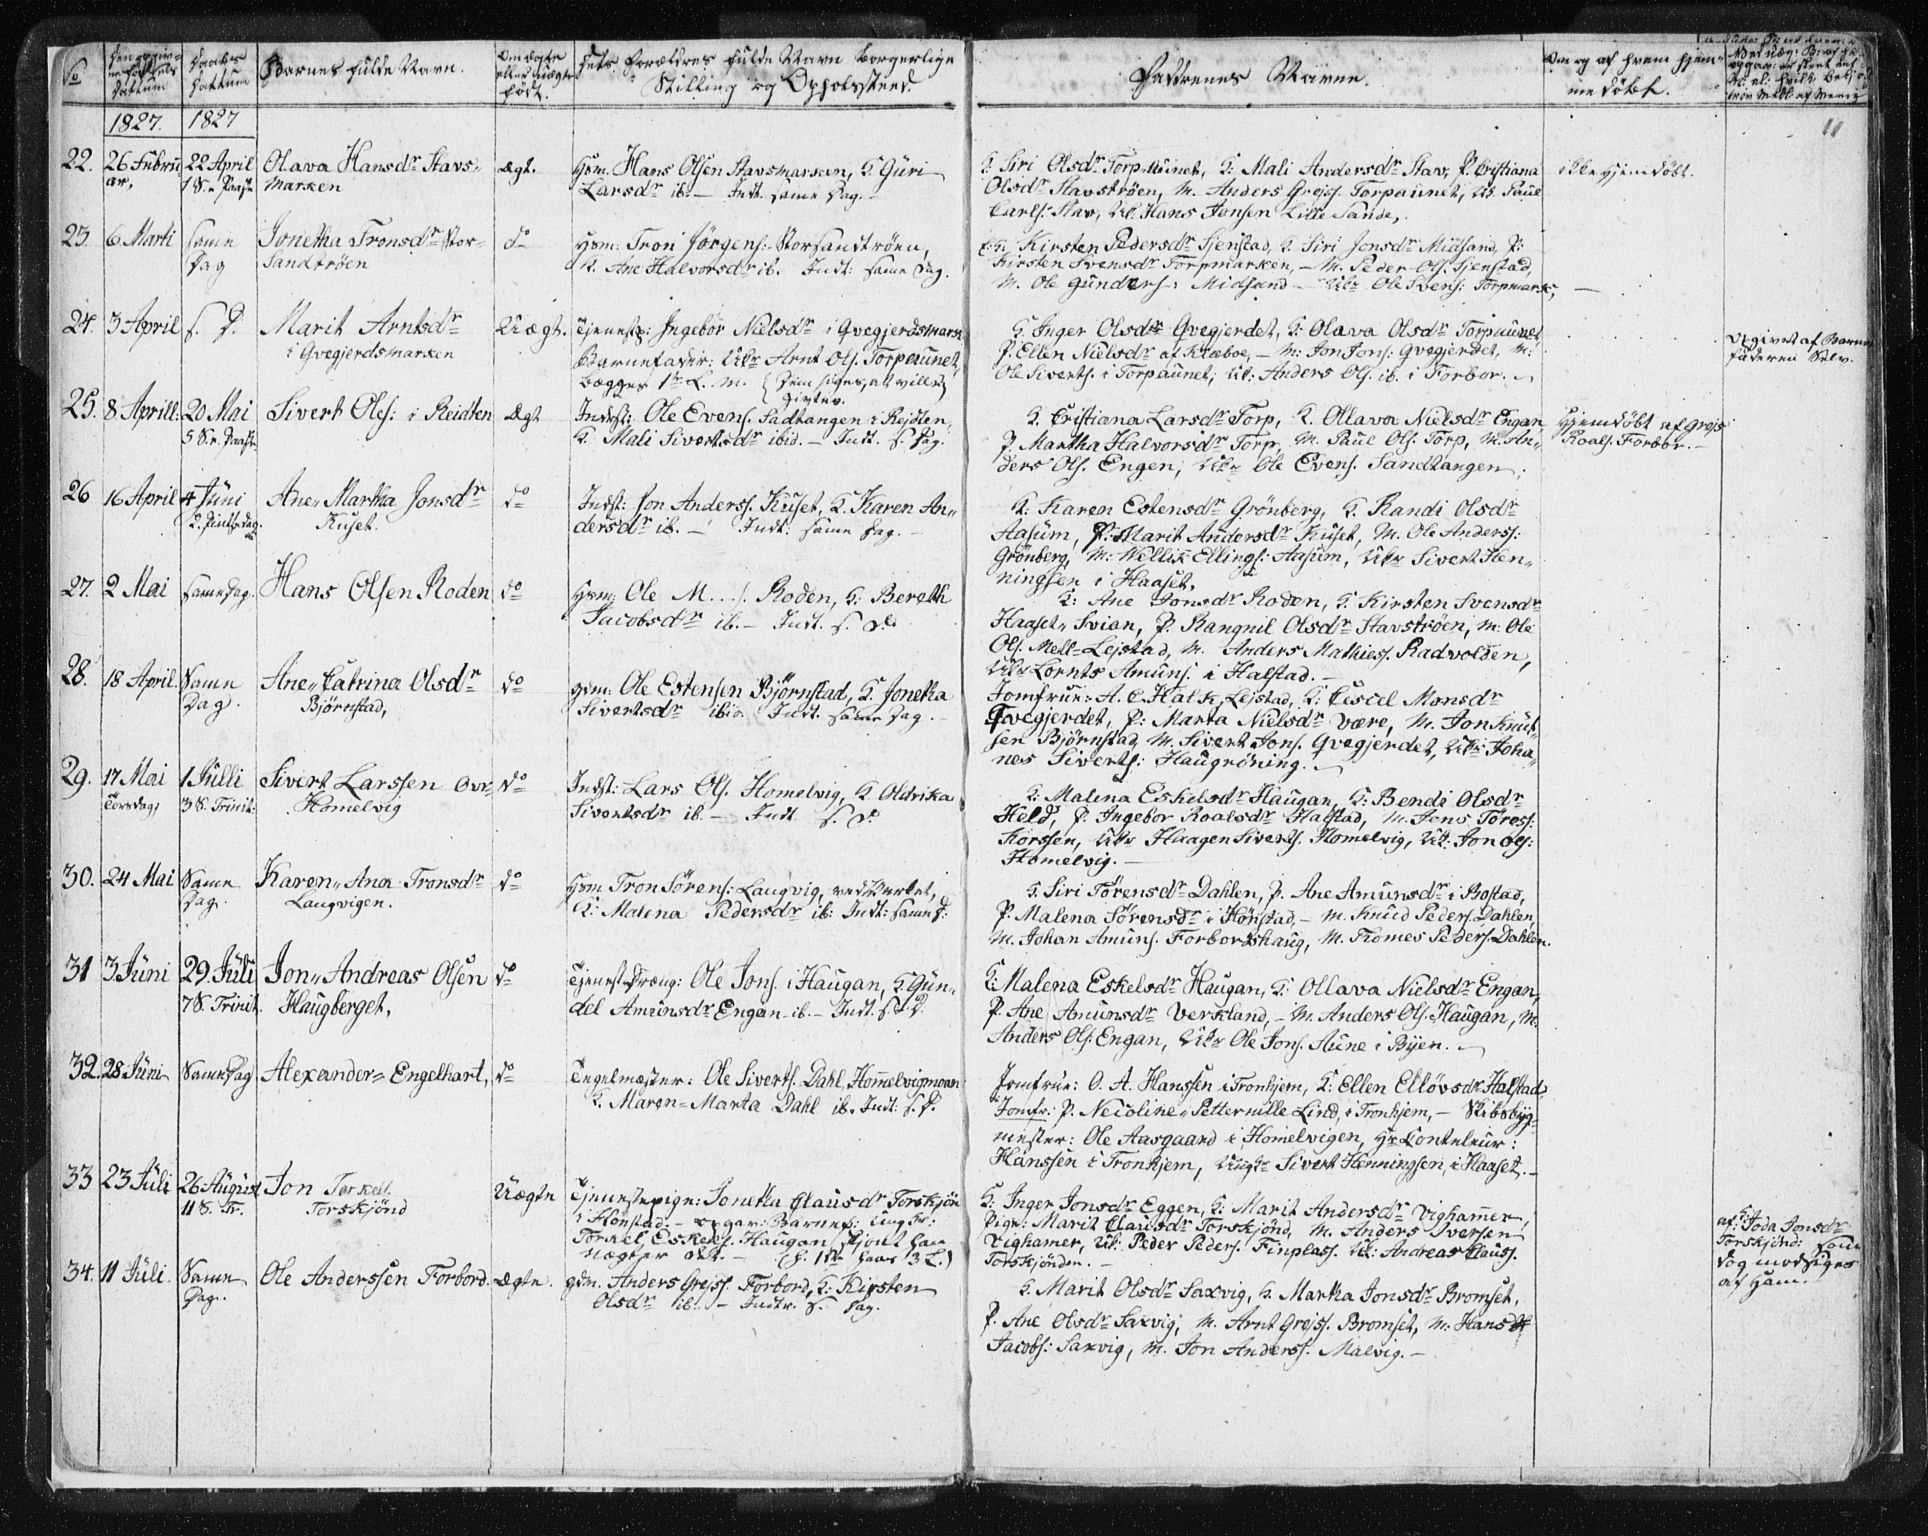 No
Barnes fulde Navn.
Skilling og Opholssteed.
Faddrenes Navne.
Om og af hvem hjem-
me döbt.
11
1827. 1827
22. 26 Februar, 22 April 1 S. e. Paaske Olava Hansdr Stavs-
marken
Ægt.
Hsm. Hans Olsen Stavsmarken, K Guri
Larsdr ib. — Indt. same Dag.
K: Siri Olsdr Torpaunet, K: Mali Andersdr Stav, P. Cristiana
Olsdr Stavströen, M. Anders Grejs. Torpaunet, Uk Paul
Carls: Stav, Uk Hans Jonsen Lille Sande,
ikke hjemdöbt.
23. 6 Marti same Dag Jonetha Tronsdr Stor-
Sandtröen
do
Hsm: Tron Jörgens: Storsandtröen,
K. Ane Halvorsdr ib. Indt: same Dag.
K: Kirsten Pedersdr Sjenstad, K. Siri Jonsdr Midsand, P:
Kirsten Svensdr Torpmarken, — M. Peder Ols. Sjenstad,
M. Ole Gunders: Midsand — Uk Ole Svens: Torpmark,
24. 3 April s. D. Marit Arntsdr
i Qvegjerdsmarken
Uægt.
Tjenestp: Ingebor Nielsdr i Qvegjerdsmark
Barnefader: Uk Arnt Ols. Torpaunet,
begges 1te L. M. (Dem siges, at ville
giftes.
K. Inger Olsdr Qvegjerdet, K: Olava Olsdr Torpaunet,
P. Ellen Nielsdr af Klæboe, — M: Jon Jons: Qvegjerdet, M:
Ole Siverts. i Torpaunet, Uk: Anders Ols. ib. i Forbor.
Opgivet af Barne
faderen Selv.
25. 8 Aprill: 20 Mai 5 S. e. Paaske Sivert Ols: i Reidten
Ægt
Indst: Ole Evens. Sadtangen i Rejdten,
K. Mali Sivertsdr ibid. — Indt. s. Dag.
K. Cristiana Larsdr Torp, K. Ollava Nielsdr Engan
P. Martha Halvorsdr Torp, M. Paul Ols. Torp, M. An-
ders Ols. Engen, Uk Ole Evens. Sandtangen.
Hjemdöbt af Grejs
Roals. Forbor. —
26 16 April 4 Juni 2. Pintsedag. Ane Martha Jonsdr
Kuset.
do
Indst: Jon Anders. Kuset, K. Karen An-
dersdr ib. — Indt: same Dag. —
K: Karen Estensdr Grönberg, K. Randi Olsdr
Aasum, P: Marit Andersdr Kuset, M. Ole Anders:
Grönberg, M: Nellik Ellings: Aasum, Uk Sivert Hen-
ningsen i Haaset,
27. 2 Mai same Dag. Hans Olsen Roden
do
Hsm: Ole M...s. Roden, K: Bereth
Jacobsdr ib. — Indt. s. D.
K: Ane Jonsdr Roden, K. Kirsten Svensdr
Haaset Svian, P. Rangnil Olsdr Stavströen, M. Ole
Ols. Mell=Lejstad, M. Anders Mathies. Radvolden,
Uk Lornts Amuns. i Halstad. —
28. 18 April. Same Dag. Ane Catrina Olsdr
Björnstad,
do
gdm: Ole Estensen Björnstad, K. Jonetha
Sivertsdr ibid. Indt. same Dag. —
Jomfrue: A. C. Halk, Lejstad, K: Cescel Monsdr
Qvegjerdet, P: Marta Nielsdr Være, M. Jon Knut-
sen Björnstad, M. Sivert Jons. Qvegjerdet, Uk: Joha-
nes Siverts: Haugröning.
29. 17 Mai Torsdag, 1 Julli 3 S. Trinit: Sivert Larssen Ovr
Homelvig
do
Indst: Lars Ols. Homelvig, K Oldrika
Sivertsdr ib. — Indt. s. D.
K: Malena Eskelsdr Haugan, K: Bendi Olsdr
Held, P. Ingebor Roalsdr Halstad, M. Jens Töress:
Korssen, Uk Haagen Siverts. Homelvig, Uk. Jon Ols:
Homelvig. —
30. 24 Mai Same Dag. Karen Ana Tronsdr
Laugvigen.
do
Hsm Tron Sörens: Laugvig, ved Værket,
K: Malena Pedersdr ib: Indt: same D:
K. Siri Törensdr Dahlen, P. Ane Amunsdr i Bostad,
P. Malena Sörensdr i Hönstad, — M. Knud Peders. Dahlen,
M. Johan Amuns. Forbordshaug, M. Thomes Peders. Dahlen.
31 3 Juni 29. Juli 7 S. Trinit. Jon Andreas Olsen
Haugberget,
do
Tjenest Dræng: Ole Jons. i Haugan, K Gun-
del Amunsdr Engan ib. — Indt. s. D.
K: Malena Eskelsdr Haugan, K: Ollava Nielsdr Engan,
P. Ane Amunsdr Verkland, — M. Anders Ols. Haugan, M.
Anders Ols. Engan, Uk Ole Jons. Aune i Byen.
32. 28 Juni Same Dag Alexander=Engelhart,
do
Tegelmester: Ole Siverts. Dahl, Hommelvigmoen
K. Maren=Marta Dahl ib. Indt: s. D.
Jomfrue: O. A. Hanssen i Tronhjem, K: Ellen Ellövsdr Halstad
Jomfr: P. Necoline Petternille Lind, i Tronhjem, — Skibsbyg-
mester: Ole Aasgaard i Homelvigen, Hr Conteleur:
Hanssen i Tronhjem, Ungkr Sivert Henningsen, i Haaset. —
33 23 Juli 26 August 11 S. Tr. Jon Torkels.
Torskjönd
Uægte
Tjenestepige: Jonetha Clausdr Torskjön
i Honstad. — opgav: Barnef: Ungkr:
Torkel Eskels. Haugan skjönt han
nægter det. — (h. 1te hans 3 L.)
K: Inger Jonsdr Eggen, K: Marit Andersdr Vighammer,
Pige: Marit Clausdr Torskjönd, M. Anders Iversen
Vighamer, Uk: Peder Peders. Finplass. Uk: Andreas Clauss.
Torskjönden. —
af K: Joda Jonsdr
Torskjönd: som
dog modsiges
af Ham.
34. 11 Juli. Same Dag. Ole Anderssen Forbord. Ægte.
gdm. Anders Grejs. Forbord, K: Kirsten
Olsdr ib. — Indtr. s. Dag.
K. Marit Olsdr Saxvig, K. Martha Jonsdr Bromset,
P. Ane Olsdr Saxvig, M. Arnt Grejs. Bromset, M. Hans
Jacobs: Saxvig, M. Jon Anders. Malvig. —